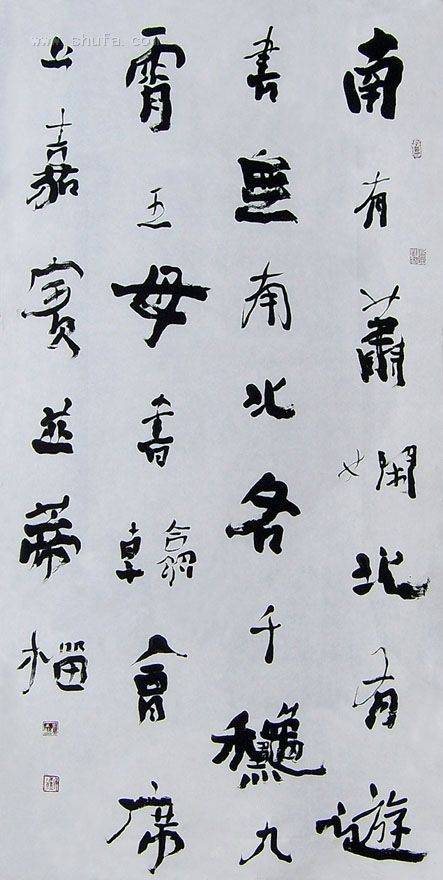 南有蕭嫻北有遊
書無南北各千龝九
霄王母書翰會席
上嘉賓並蒂榴
www.shufa.com